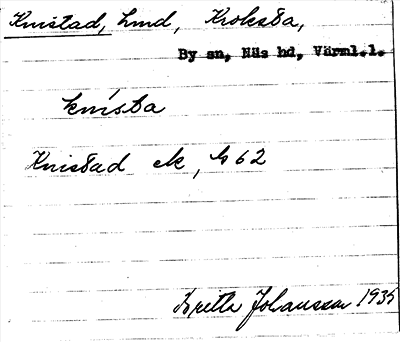 Knistad, hmd, Kroksta,
By sn, Näs hd, Värml.l.
knísta
Knistad ek, G 62
Britta Johansson 1935